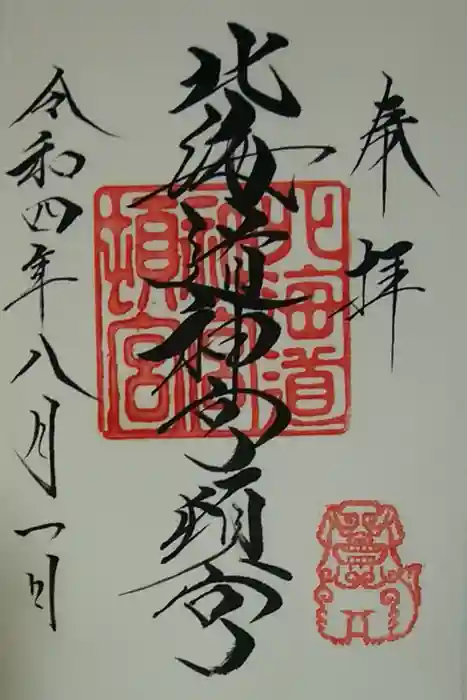 奉拝
北海道神宮頓宮
北海道
神宮
頓宮
令和四年八月一日